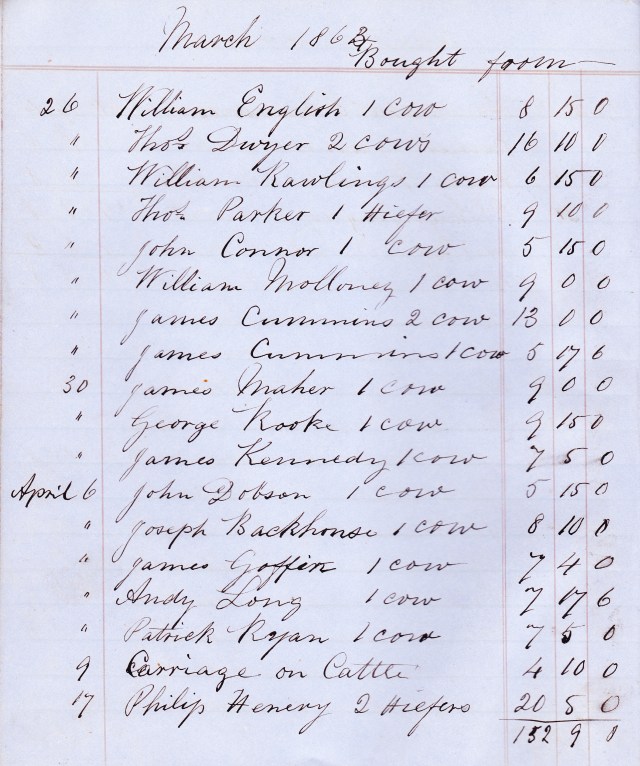 March 1863
Bought from
26 William English 1 cow 8 15 0
" Thos Dwyer 2 cows 16 10 0
" William Rawlings 1 cow 6 15 0
" Thos Parker 1 Hiefer 9 10 0
" John Connor 1 cow 5 15 0
" William Molloney 1 cow 9 0 0
" James Cummins 2 cow 13 0 0
" James Cummins 1 cow 5 17 6
30 James Maher 1 cow 9 0 0
" George Rooke 1 cow 9 15 0
" James Kennedy 1 cow 7 5 0
April 6 John Dobson 1 cow 5 15 0
" Joseph Backhouse 1 cow 8 10 0
" James Goffin 1 cow 7 4 0
" Andy Long 1 cow 7 17 6
" Patrick Ryan 1 cow 7 5 0
9 Carriage on Cattle 4 10 0
17 Philip Henery 2 Hiefers 20 5 0
152 9 0